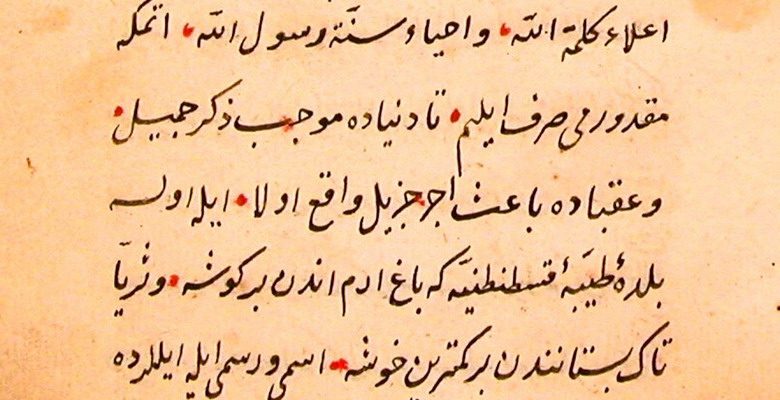 اعلاء كلمة الله، واحياء سنّة رسول الله، اتمكه
مقدورمی صرف ایلیم، تا دنیاده موجب ذكر جمیل،
وعقباده باعث اجر جزیل واقع اولا، ایله اولسه
بلدهٔ طیّبهٔ قسطنطنیّه كه باغ ارم اندن بر كوشه، وثریّا
تاك بستانندن بر كمترین خوشه، اسمی ورسمی ایله ایللرده